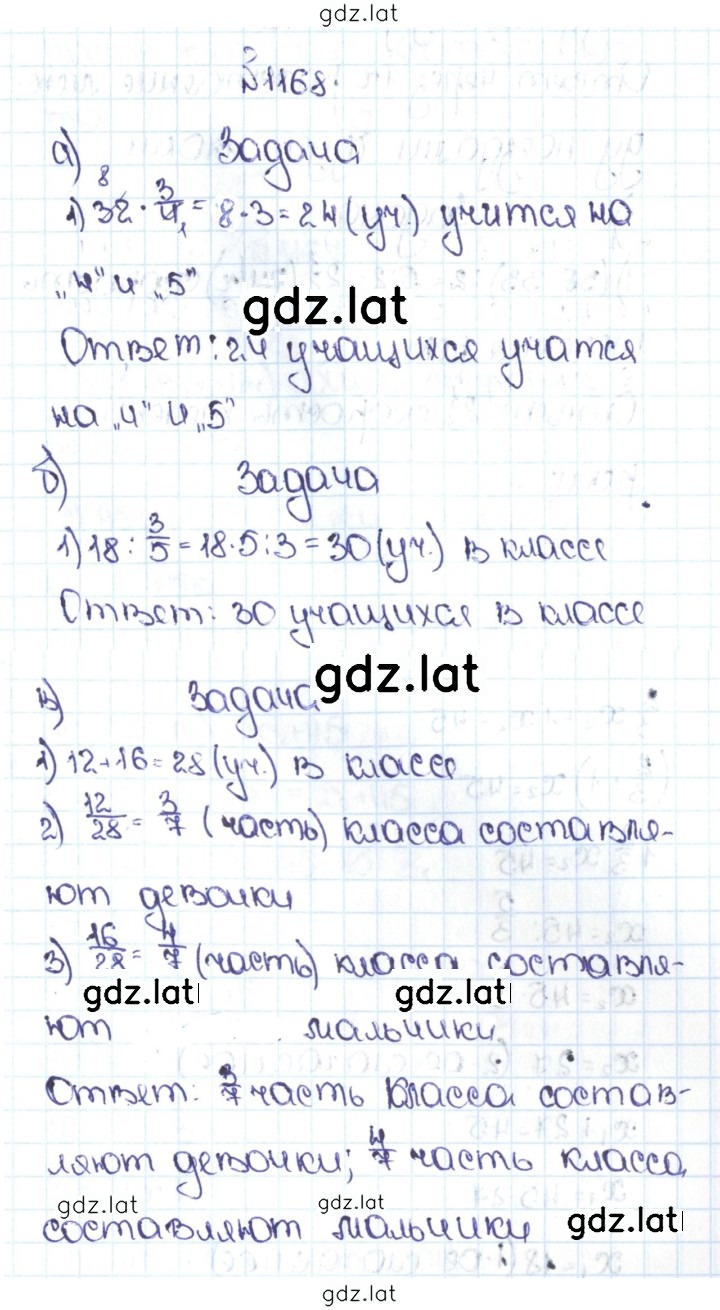 gdz.lat
№1168.
а) Задача
1) 32 · 3/4 = 8·3=24 (уч.) учится на
8 1
„4" и „5"
gdz.lat
Ответ: 24 учащихся учатся
на „4" и „5"
б) Задача
1) 18 : 3/5 = 18·5:3=30 (уч.) в классе
Ответ: 30 учащихся в классе
gdz.lat
в) Задача
1) 12+16=28 (уч.) в классе
2) 12/28 = 3/7 (часть) класса составля-
ют девочки
3) 16/28 = 4/7 (часть) класса составля-
gdz.lat gdz.lat
ют мальчики
Ответ: 3/7 часть класса состав-
ляют девочки; 4/7 часть класса
gdz.lat gdz.lat
составляют мальчики gdz.lat
gdz.lat